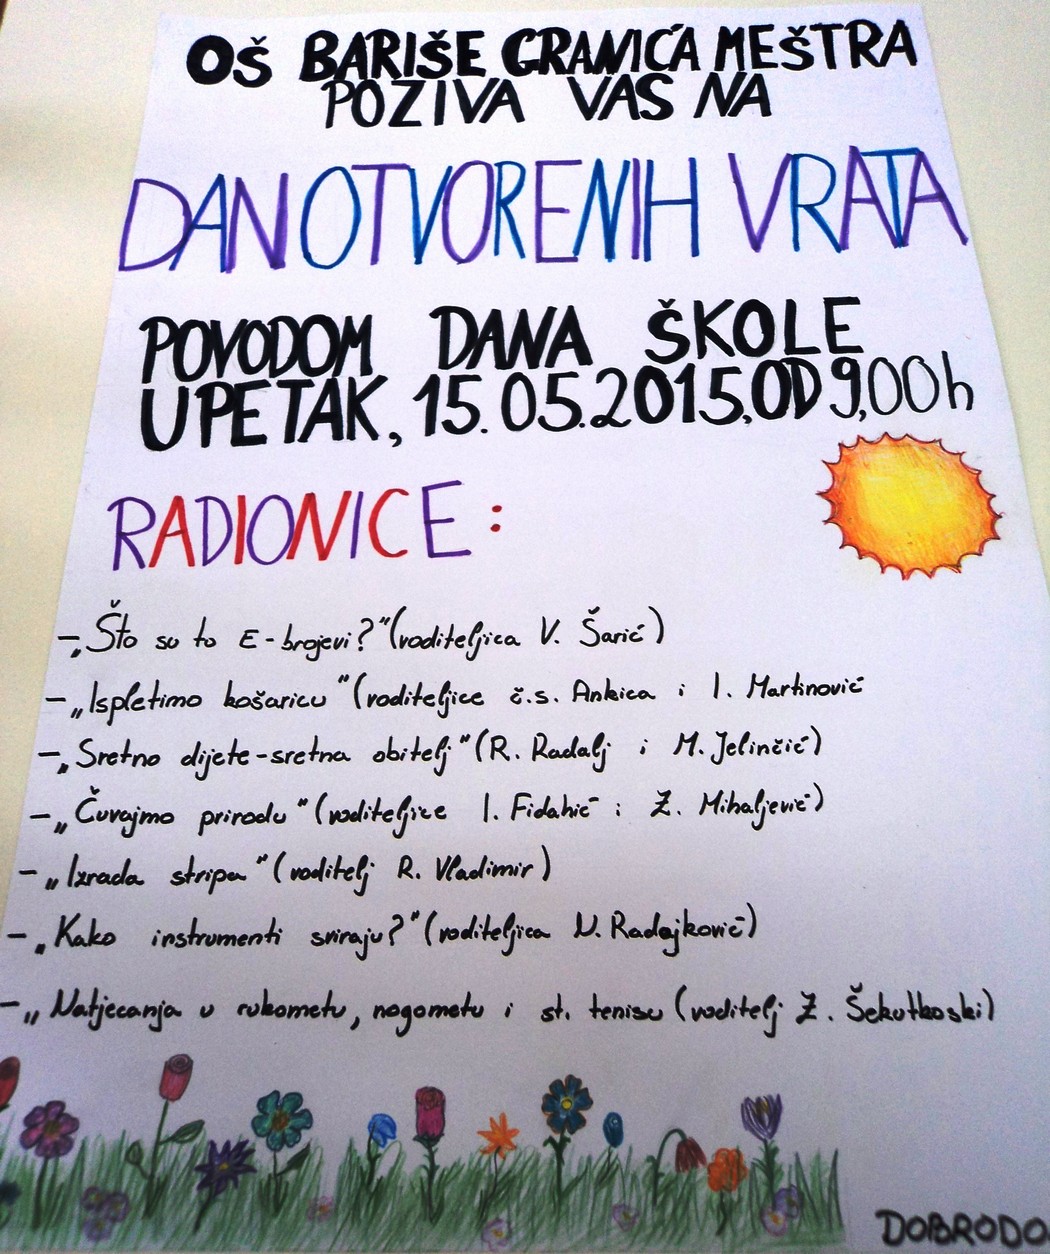 OŠ BARIŠE GRANIĆA MEŠTRA
POZIVA VAS NA
DAN OTVORENIH VRATA
POVODOM DANA ŠKOLE
U PETAK, 15.05.2015, OD 9,00h
RADIONICE :
- „Što su to E-brojevi?" (voditeljica V. Šarić)
- „Ispletimo košaricu" (voditeljice č.s. Ankica i I. Martinović
- „Sretno dijete-sretna obitelj" (R. Radalj i M. Jelinčić)
- „Čuvajmo prirodu" (voditeljice I. Fidahić i Ž. Mihaljević)
- „Izrada stripa" (voditelj R. Vladimir)
- „Kako instrumenti sviraju?" (voditeljica N. Radajković)
- „Natjecanja u rukometu, nogometu i st. tenisu (voditelj Ž. Šekutkoski)
DOBRODO